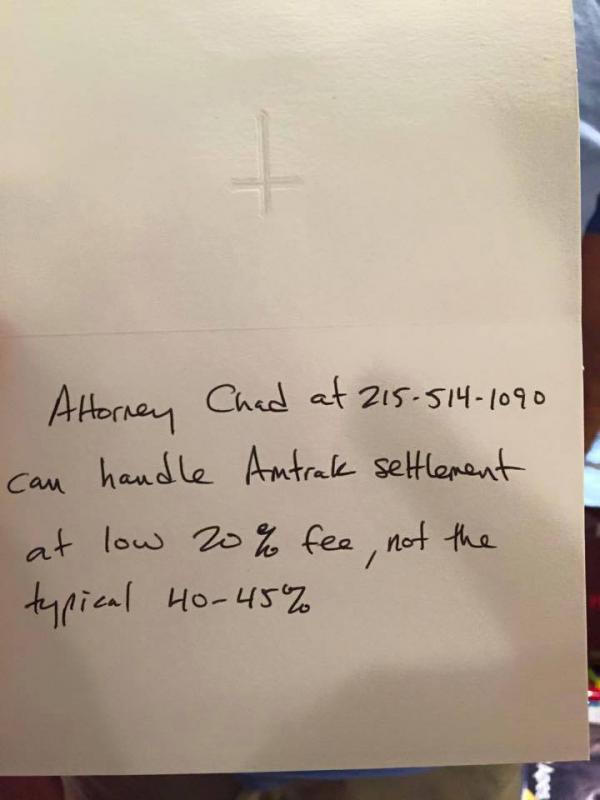 Attorney Chad at 215-514-1090
can handle Amtrak settlement
at low 20% fee, not the
typical 40-45%